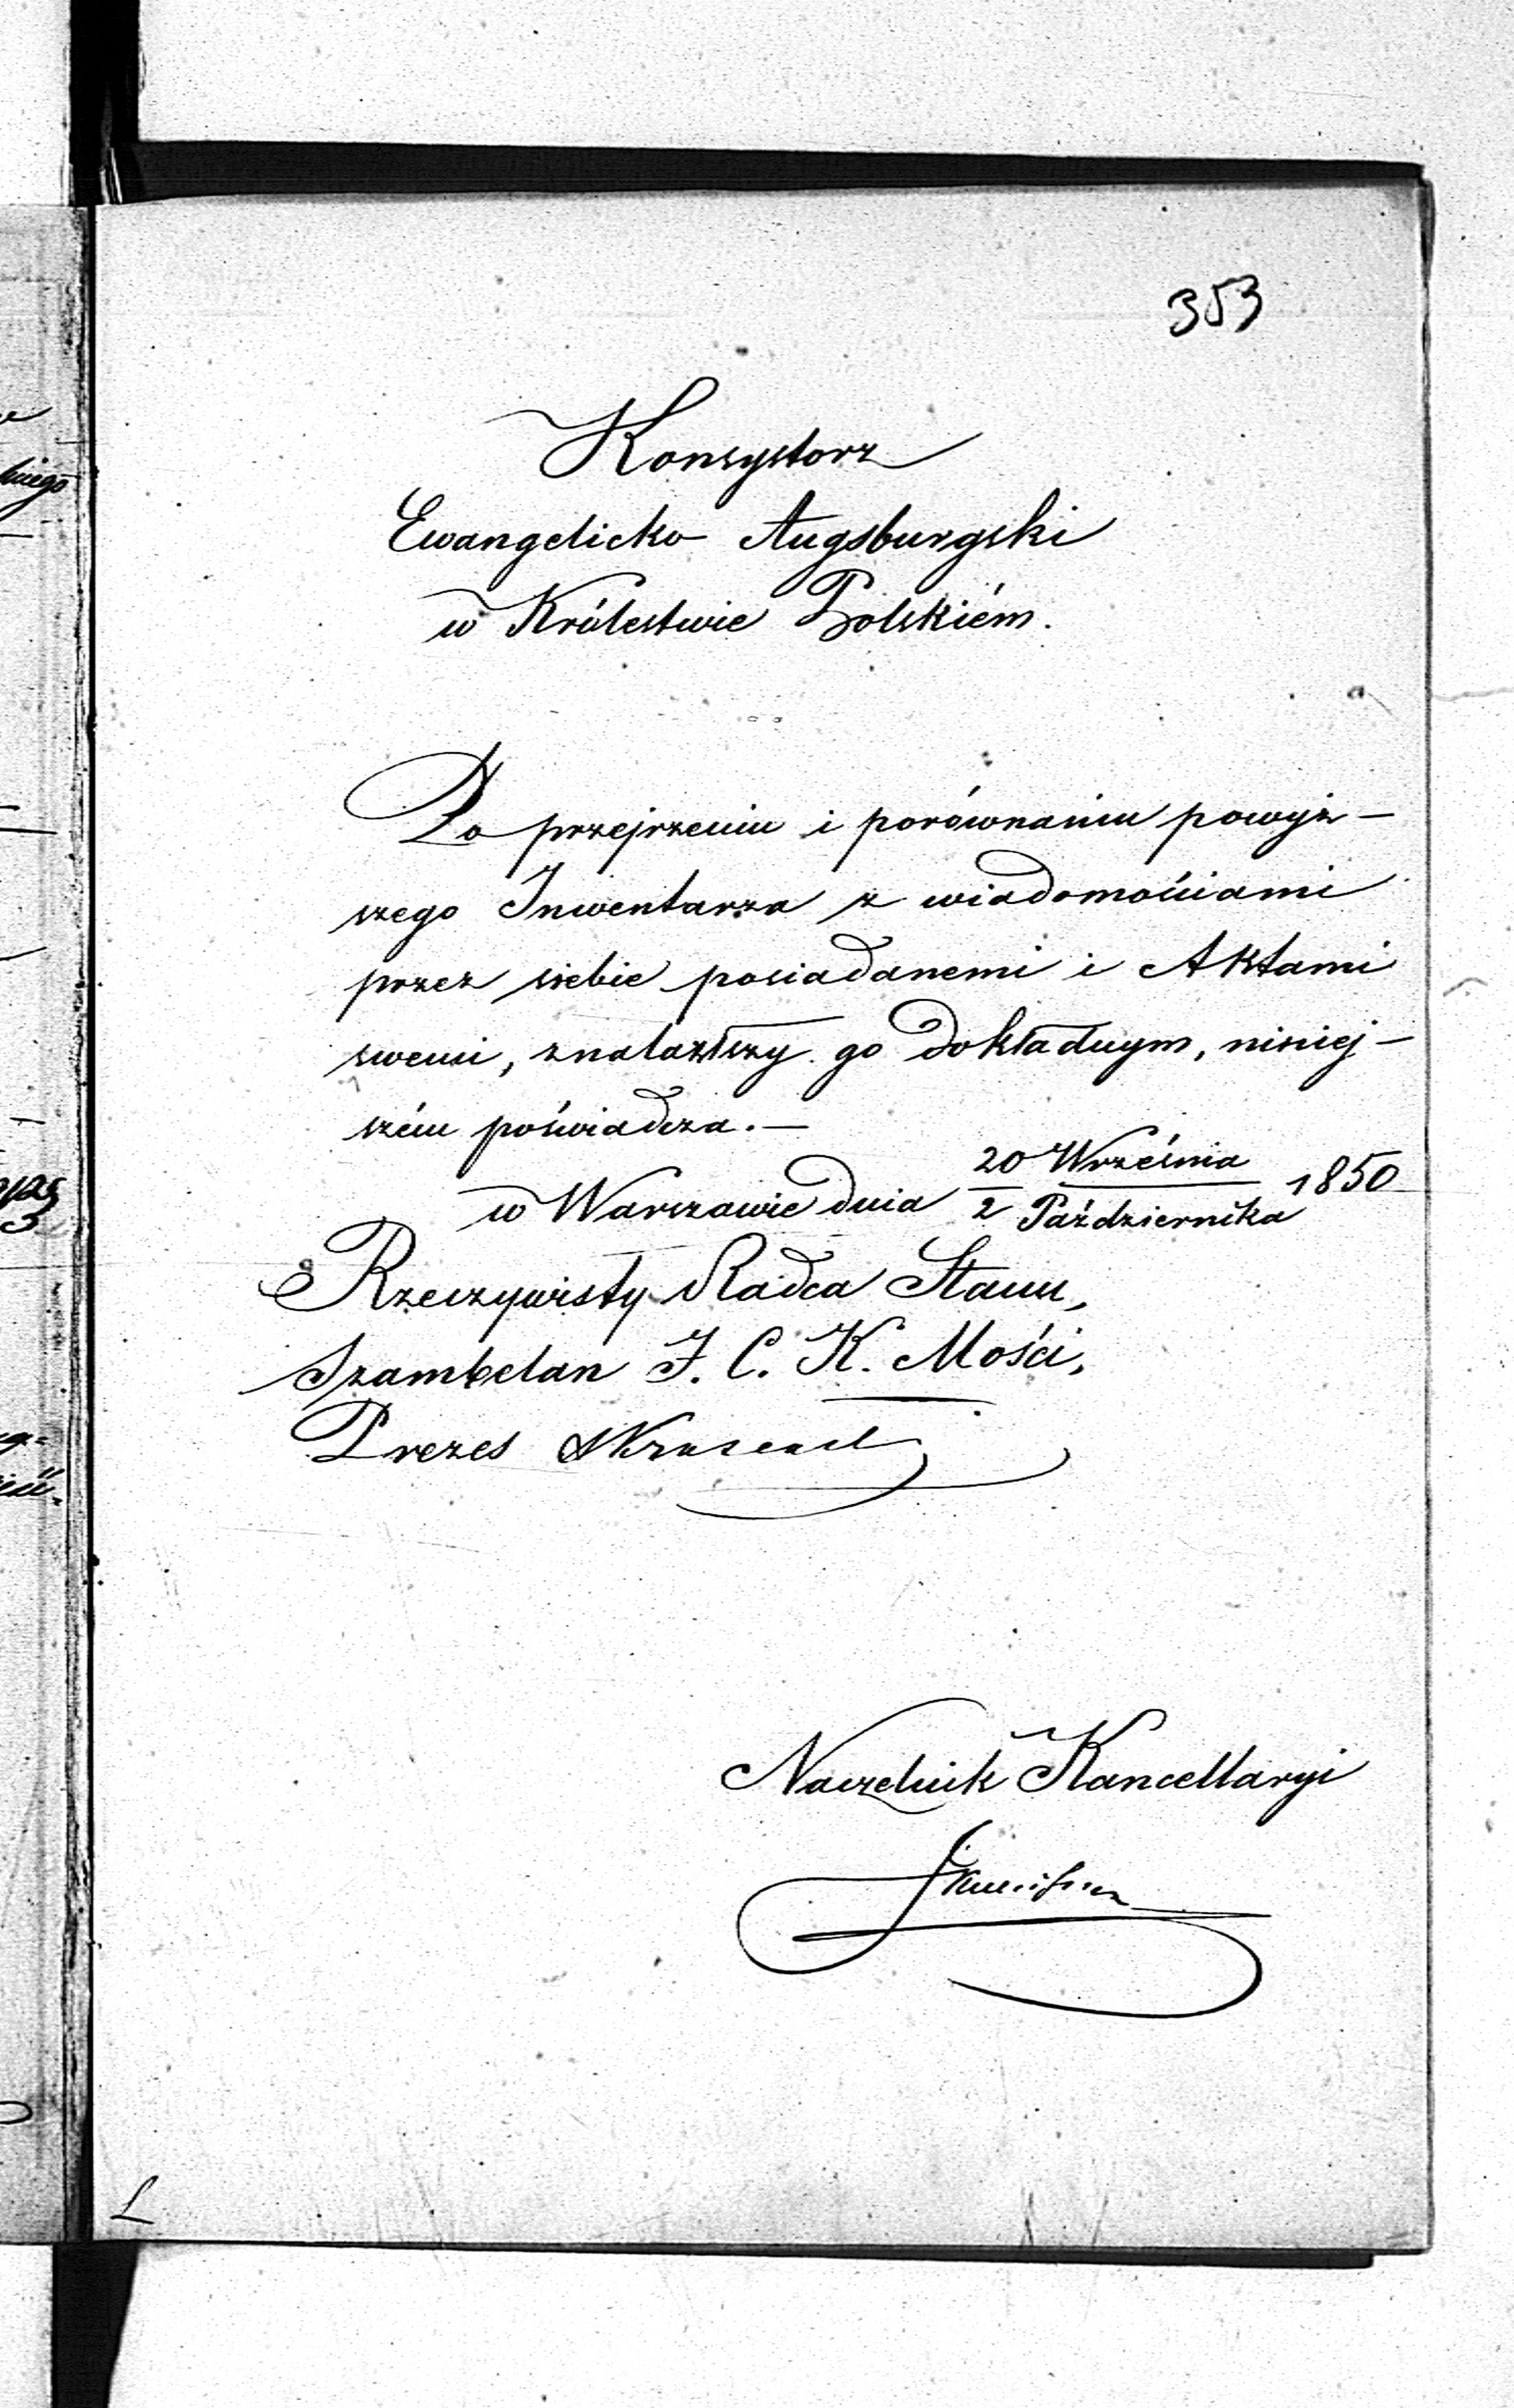 353
Konsystorz
Ewangelicko Augsburgski
w Królestwie Polskiém.
Po przejrzeniu i porównaniu powyż–
szego Inwentarza z wiadomościami
przez siebie posiadanemi i Aktami
swemi, znalazłszy go dokładnym, niniej–
szém poświadcza.–
w Warszawie dnia 20 Września / 2 Października 1850
Rzeczywisty Radca Stanu,
Szambelan J. C. K. Mości,
Prezes
Naczelnik Kancellaryi